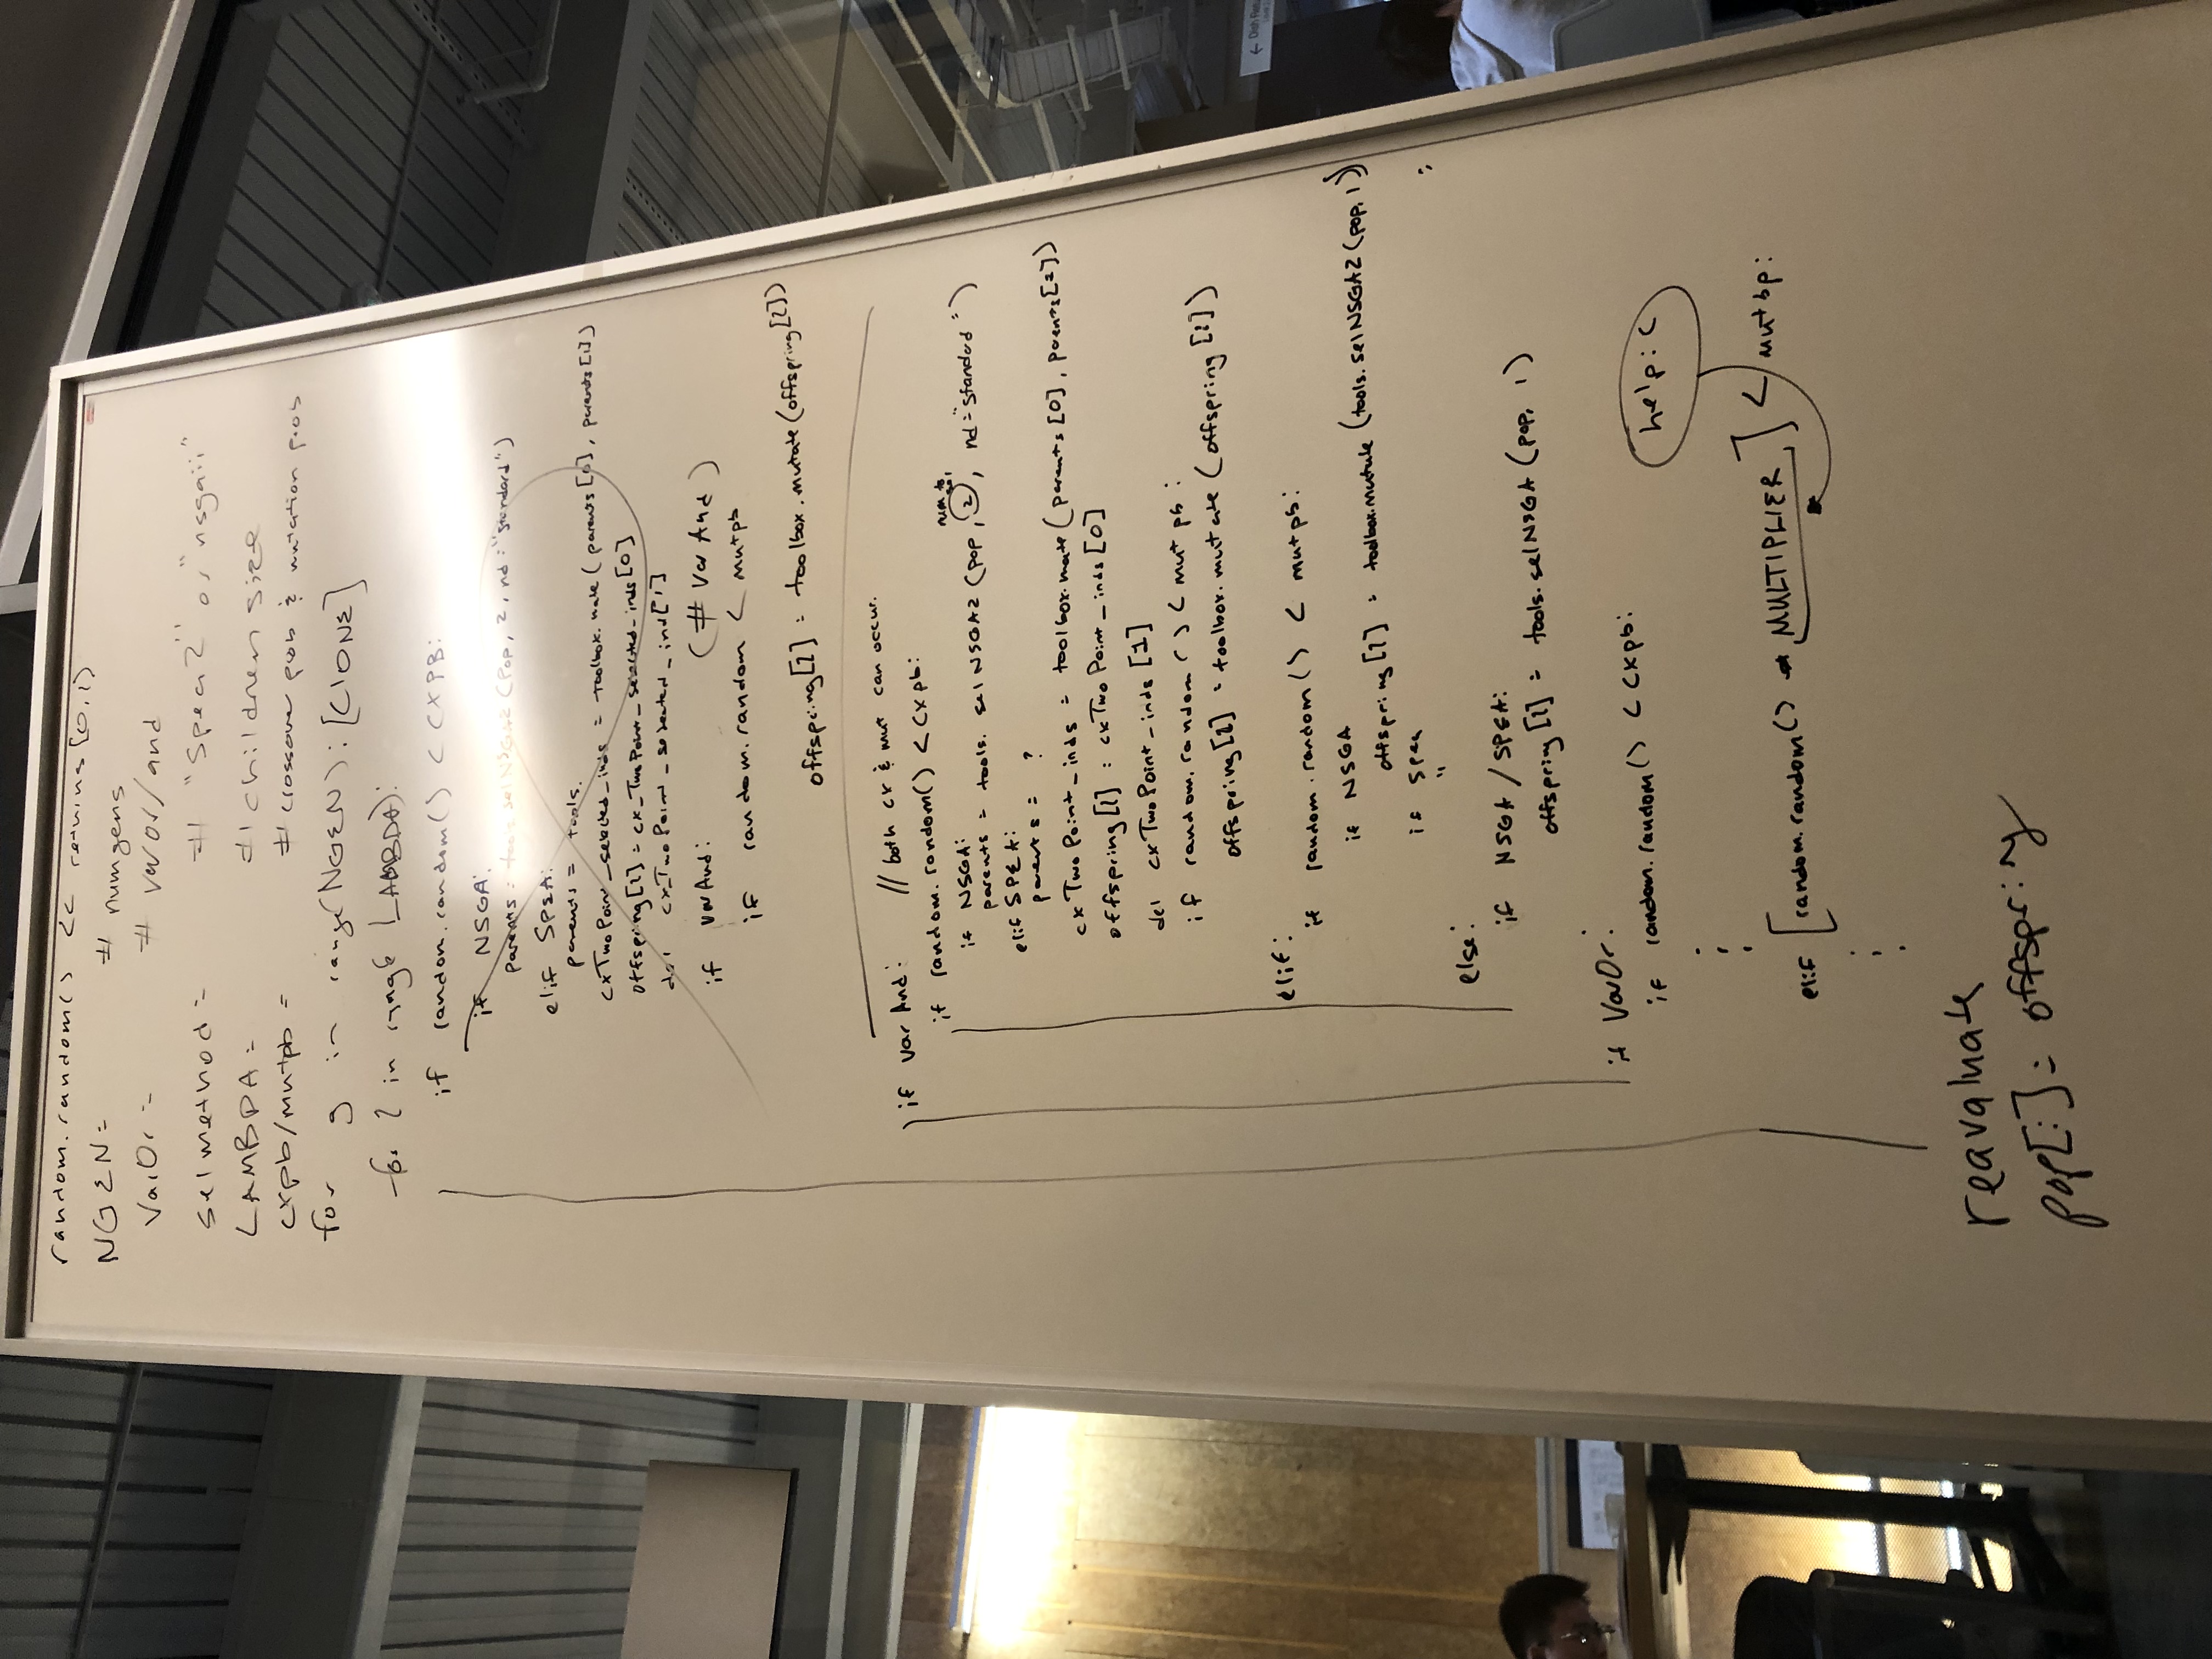 random.random() << returns [0,1)
NGEN= # numgens
VarOr = # var or/and
selmethod = # "Spea2" or "nsgaii"
LAMBDA = # children size
cxpb/mutpb = # crossover prob & mutation prob
for g in range(NGEN): [CLONE]
for l in range LAMBDA):
if random.random() < CXPB:
if NSGA:
parents = tools.selNSGA2 (Pop, 2, nd = "standard")
elif SPEA:
parents = tools.
cxTwoPoint_selected_inds = toolbox.mate (parents[0], parents[1])
offspring[l] = cx_TwoPoint_selected_inds[0]
del cx_TwoPoint_selected_ind[1]
if varAnd: (# Var And)
if random.random < mutpb
offspring[l] = toolbox.mutate(offspring[l])
if var And: // both cx & mut can occur.
if random.random() < Cxpb:
num to
if NSGA:
parents = tools. selNSGA2 (pop, 2, nd = "standard")
elif SPEA:
parents = ?
cxTwoPoint_inds = toolbox.mate (parents[0], parents[1])
offspring[l] = cxTwoPoint_inds[0]
del cxTwoPoint_inds[1]
if random.random() < mutpb:
offspring[l] = toolbox.mutate (offspring[l])
elif:
if random.random() < mutpb:
if NSGA
offspring[l] = toolbox.mutate (tools.selNSGA2 (pop, 1)
:
if spea
"
else:
if NSGA / SPEA:
offspring[l] = tools.selNSGA (pop, 1)
if VarOr:
if random.random() < Cxpb:
help :(
elif [random.random() * MULTIPLIER] < mutbp:
reavaluate
pop[:] = offspring
← Dish Retu